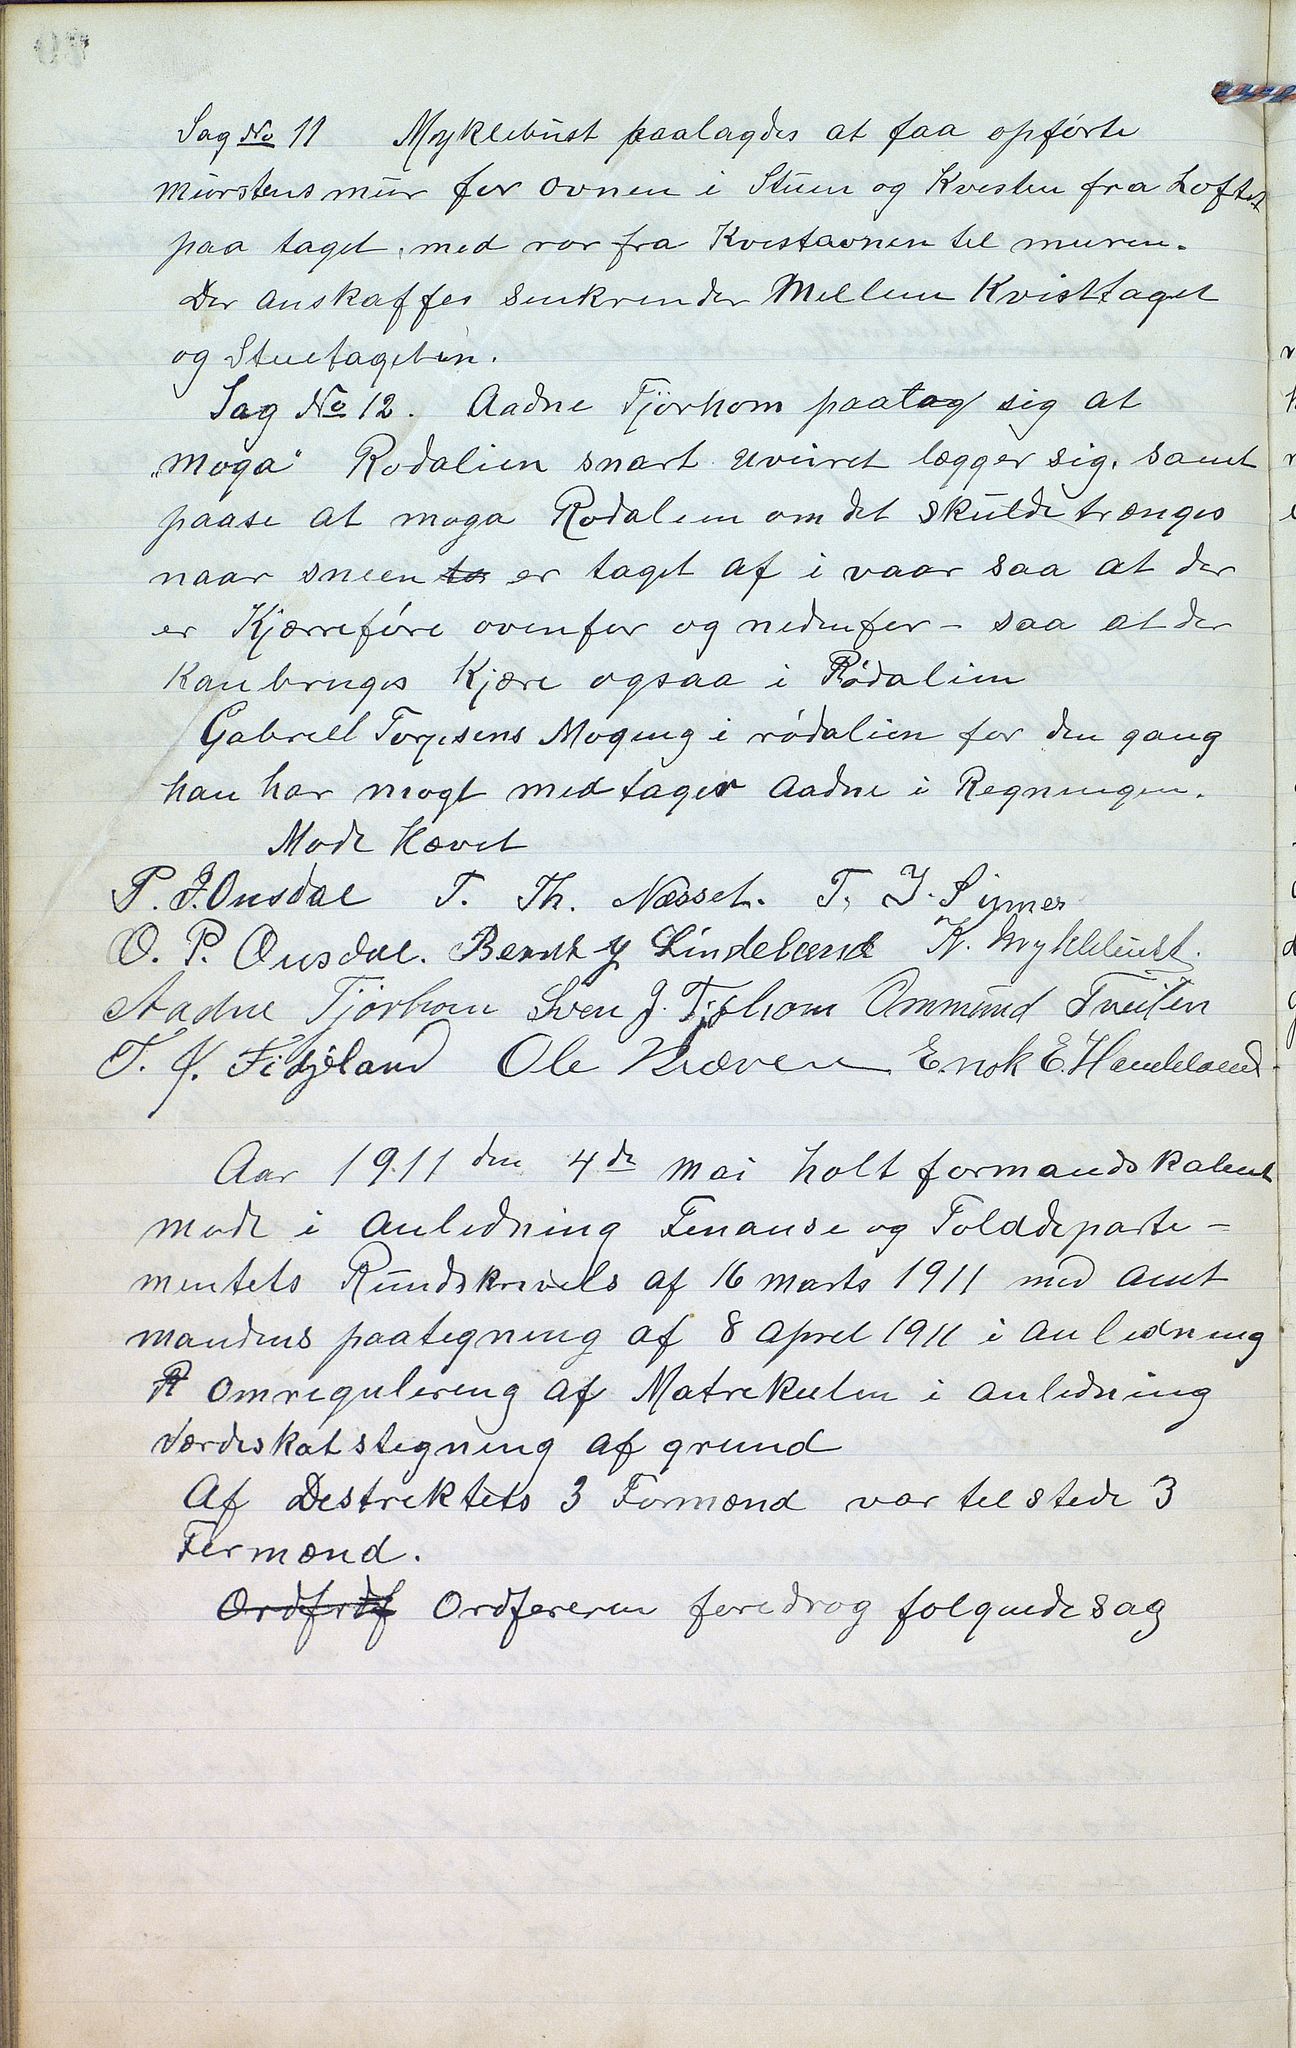 Sag No 11 Myklebust paalagdes at faa opførte
murstensmur for ovnen i Stuen og Kvisten fra Loftet
paa taget, med rør fra Kvistovnen til muren.
Der anskaffes senkrender Mellem Kvisttaget
og Stuetaget
Sag No 12. Aadne Tjørhom paatog sig at
"moga" Rødalien snart uveiret lægger sig, samt
paase at moga Rødalien om det skulde trænges
naar sneen er taget af i vaar saa at der
er Kjærreføre ovenfor og nedenfor - saa at der
kan bruges Kjære ogsaa i Rødalien
Gabrell Torjesens Moging i rødalien for den gang
han har mogt medtager Aadne i Regningen.
Møde Hævet
P. J. Ousdal T. Th. Næsset. T. J. Sinnes
O. P. Ousdal. Berndt J Lindeland K. Myklebust.
Aadne Tjørhom Sven J. Tjørhom Ommund Tveiten
T. K. Fidjeland Ole Kvæven Enok E. Handeland.
Aar 1911 den 4de mai holt formandskabet
møde i anledning Finanse og Tolddeparte-
mentets Rundskrivels af 16 marts 1911 med amt
mandens paategning af 8 April 1911 i anledning
omregulering af Matrekulen i anledning
Værdiskatstegning af grund
Af Destriktets 3 Formænd var tilstede 3
Formænd.
Ordføreren foredrog følgende sag